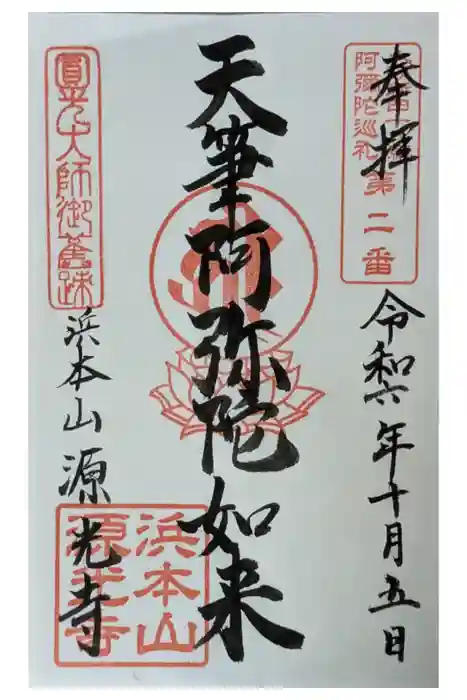 奉拝
阿弥陀巡礼
第二番
令和六年十月五日
天筆阿弥陀如来
圓光大師御舊跡
浜本山源光寺
浜本山
源光寺